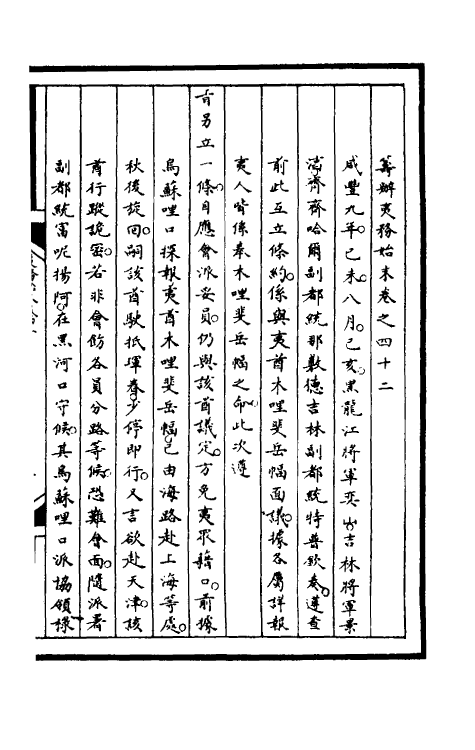 籌辦夷務始末卷之四十二
咸豐九年。己未八月。己亥。黑龍江將軍奕山吉林將軍景
淳齊齊哈爾副都統那敷德吉林副都統特普欽奏。遵查
前此互立條約。係與夷酋木哩斐岳幅面議。據各屬詳報
夷人皆係奉木哩斐岳幅之命。此次遵
旨另立一條。自應會派妥員。仍與該酋議定。方免夷眾藉口。前據
烏蘇哩口探報夷酋木哩斐岳幅已由海路赴上海等處。
秋後旋回。嗣該酋駛抵琿春。少停即行。又言欲赴天津。該
酋行蹤詭密。若非會飭各員分路等候。恐難會面。隨派署
副都統富呢揚阿。在黑河口守候。其烏蘇哩口派協領祿